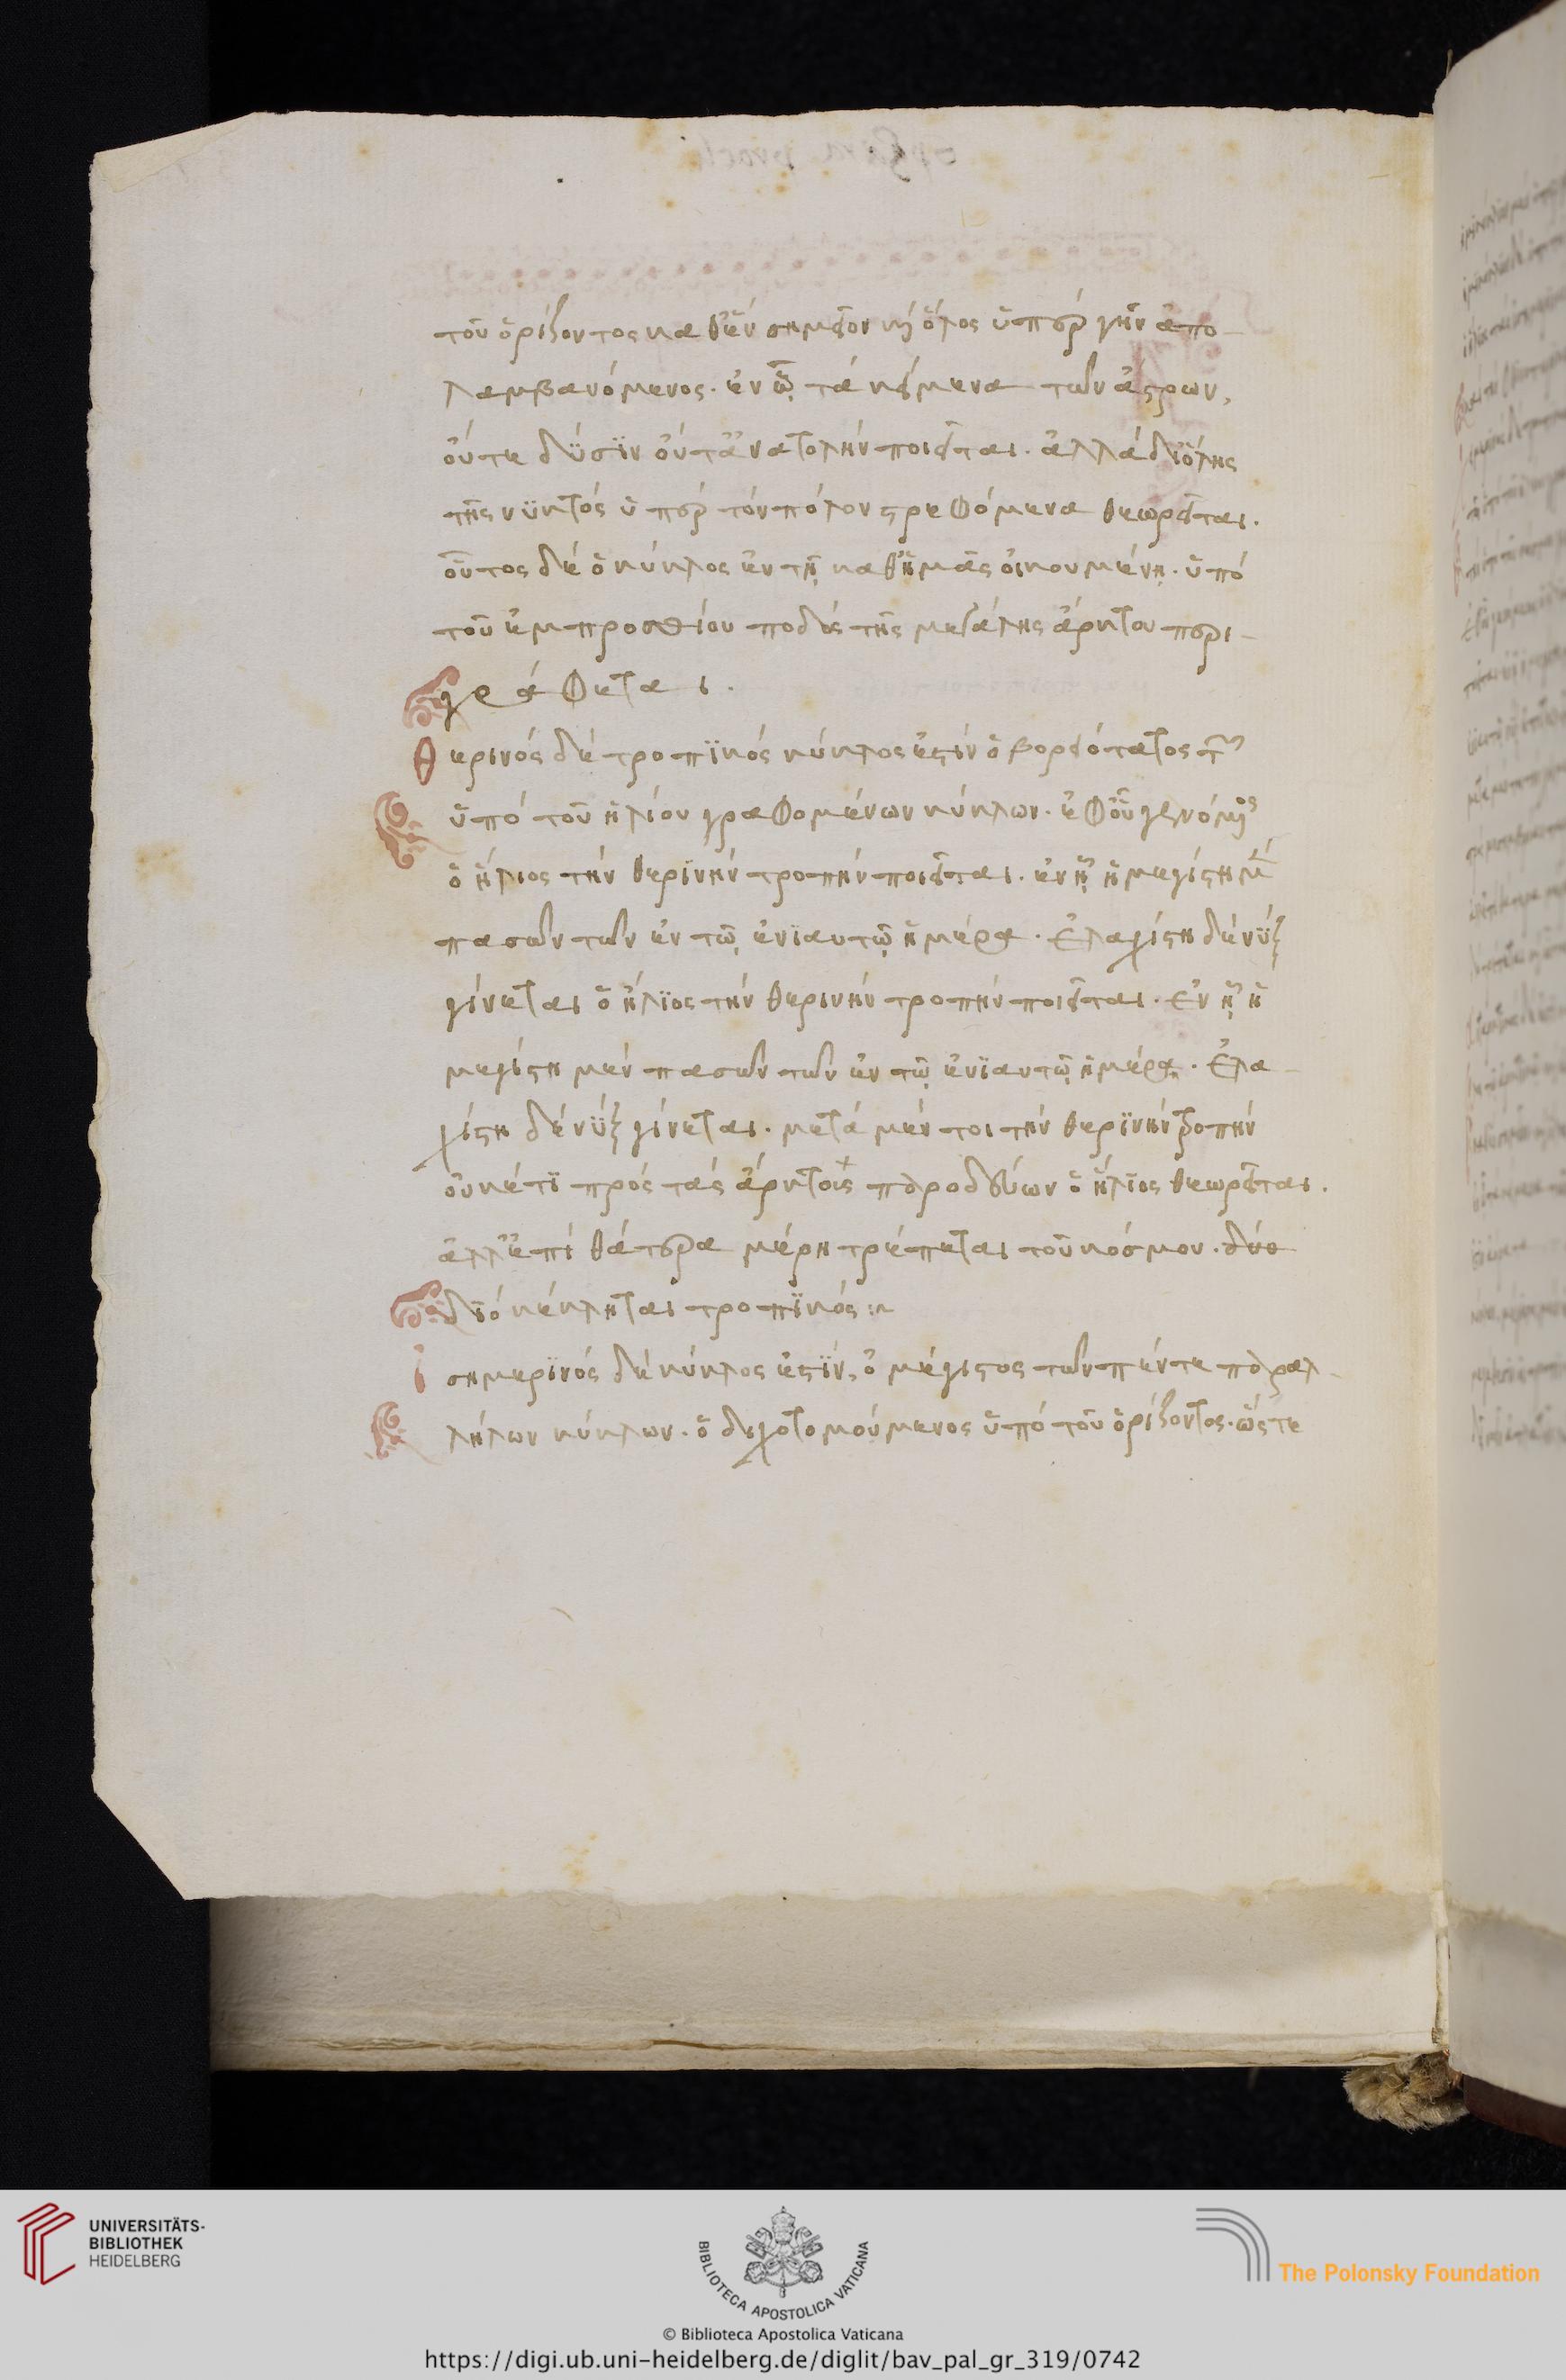 τοῦ ὁρίζοντος καθ' ἓν σημεῖον κ(αὶ) ὅλος ὑπὲρ γῆν ἀπο-
λαμβανόμενος. ἐν ᾧ τὰ κείμενα τῶν ἄστρων,
οὔτε δύσϊν οὔτ' ἀνατολὴν ποιεῖται. ἀλλὰ δι' ὅλης
τῆς νϋκτὸς ὑπὲρ τὸν πόλον στρεφόμενα θεωρεῖται.
οὗτος δὲ ὁ κύκλος ἐν τῇ καθ' ἡμᾶς οἰκουμένῃ. ὑπὸ
τοῦ ἐμπροσθίου ποδὸς τῆς μεγάλης ἄρκτου περι-
γράφεται.
Θερινὸς δὲ τροπϊκὸς κύκλος ἐστὶν ὁ βορειότατος τῶν
ὑπὸ τοῦ ἡλίου γραφομένων κύκλων. ἐφ' οὗ γενόμενος
ὁ ἥλιος τὴν θερϊνὴν τροπὴν ποιεῖται. ἐν ᾗ ἡ μεγίστη μὲν
πασῶν τῶν ἐν τῷ ἐνϊαυτῷ ἡμέρα. ἐλαχίστη δὲ νὺξ
γίνεται ὁ ἥλϊος τὴν θερινὴν τροπὴν ποιεῖται. ἐν ᾗ ἡ
μεγίστη μὲν πασῶν τῶν ἐν τῷ ἐνϊαυτῷ ἡμέρα. ἐλα-
χίστη δὲ νὺξ γίνεται. μετὰ μέν τοι τὴν θερϊνὴν τροπὴν
οὐκέτϊ πρὸς τὰς ἄρκτους παροδεύων ὁ ἥλϊος θεωρεῖται.
ἀλλ' ἐπὶ θάτερα μέρη τρέπεται τοῦ κόσμου. δύο
δϊὸ κέκληται τροπϊκός :~
ἰσημερϊνὸς δὲ κύκλος ἐστϊν, ὁ μέγιστος τῶν πέντε παραλ-
λήλων κύκλων. ὁ διχοτομούμενος ὑπὸ τοῦ ὁρίζοντος. ὥστε
UNIVERSITÄTS-
BIBLIOTHEK
HEIDELBERG
BIBLIOTECA APOSTOLICA VATICANA
The Polonsky Foundation
© Biblioteca Apostolica Vaticana
https://digi.ub.uni-heidelberg.de/diglit/bav_pal_gr_319/0742